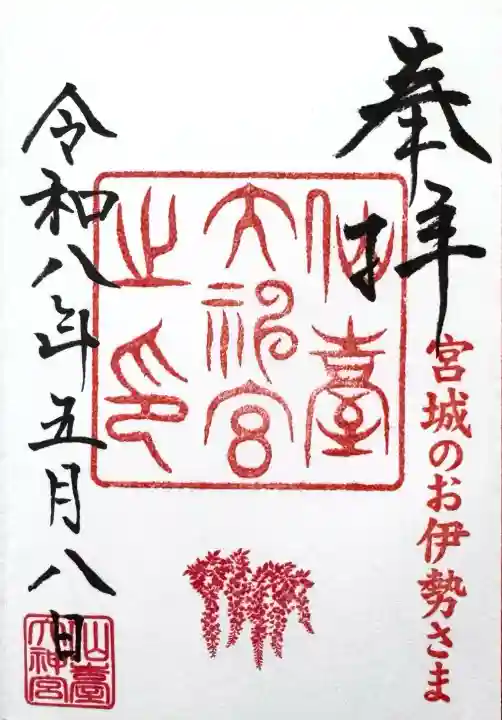 奉拝
宮城のお伊勢さま
仙臺
大神宮
之印
令和八年五月八日
仙臺
大神宮